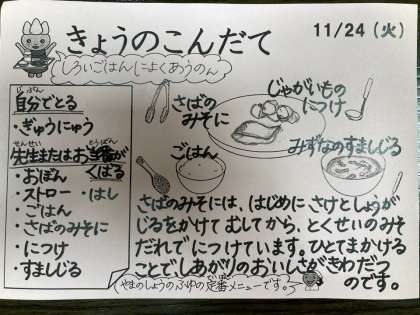 きょうのこんだて
11/24（火）
しろいごはんによくあうのん
じぶん
自分でとる
・ぎゅうにゅう
せんせい とうばん
先生またはお当番が
くばる
・おぼん
・ストロー ・はし
・ごはん
・さばのみそに
・につけ
・すましじる
さばの
みそに
じゃがいもの
につけ
ごはん
みずなのすましじる
さばのみそには、はじめに さけとしょうが
じるをかけて むしてから、とくせいのみそ
だれで につけています。ひとてまかける
ことでしあがりのおいしさがきわだつ
のです。
やまのしょうのふゆの定番メニューです。